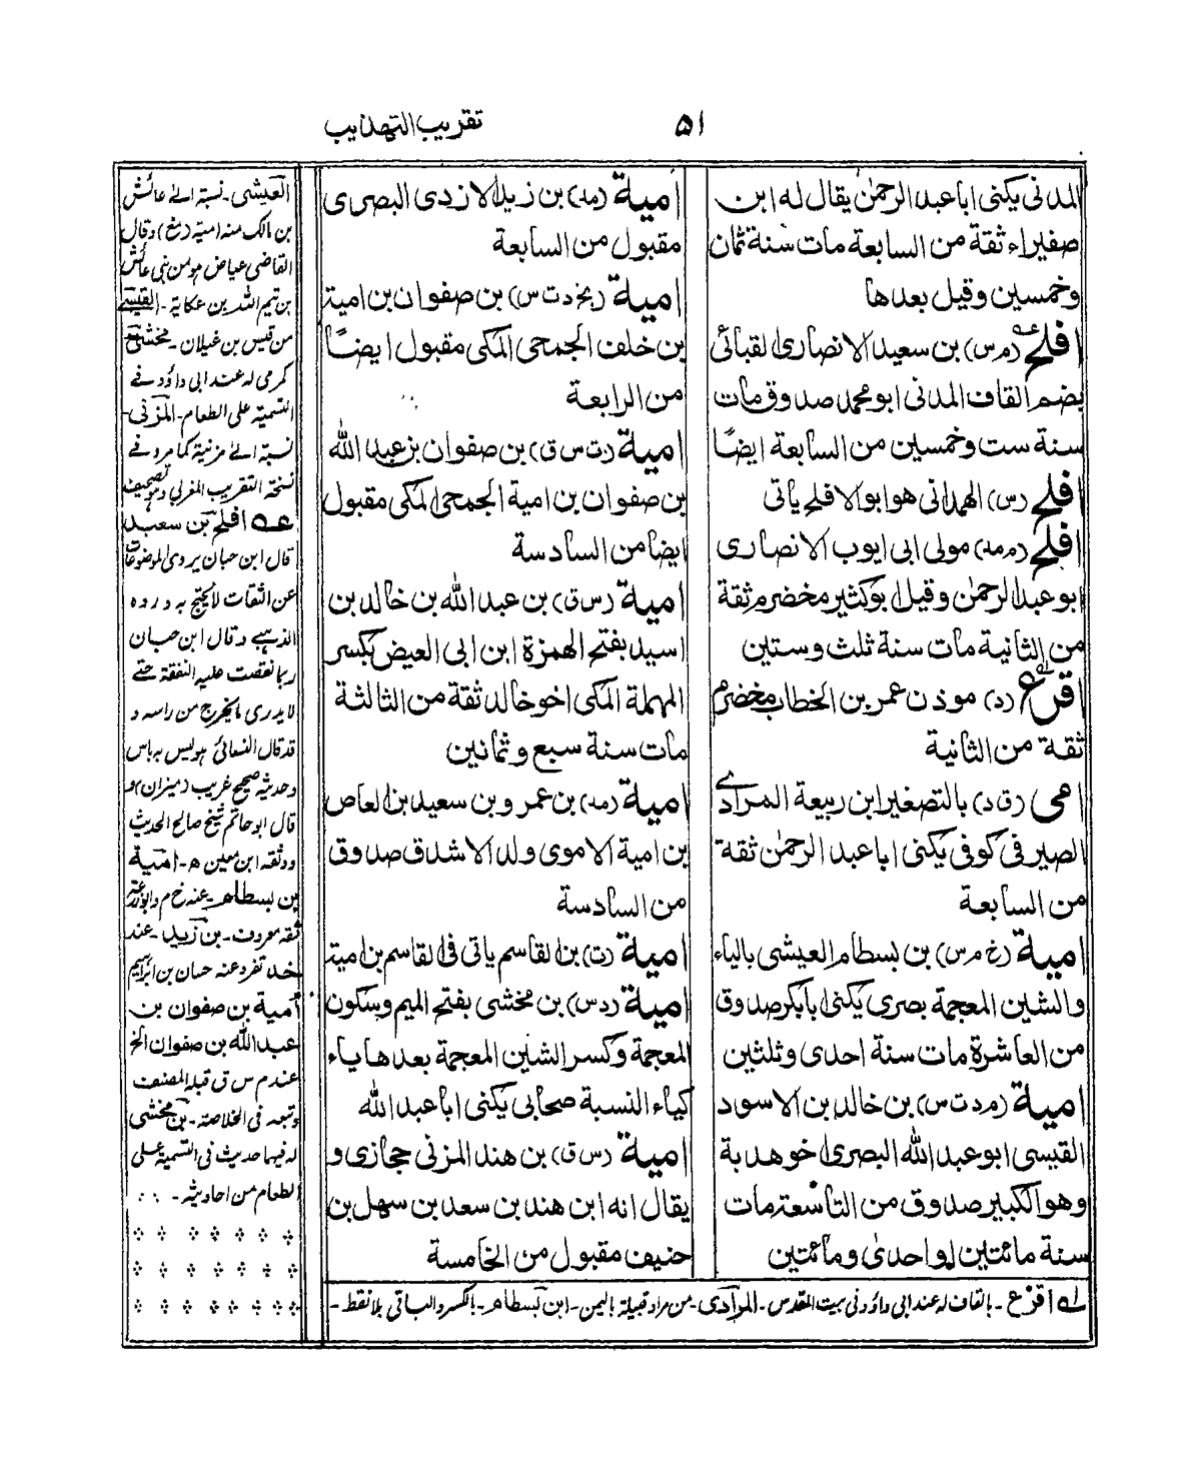 ٥١
تقريب التهذيب
المدنى يكنى ابا عبد الرحمٰن يقال له ابن
صفيراء ثقة من السابعة مات سنة ثمان
وخمسين وقيل بعدها
افلح (م س) بن سعيد الانصارى القبائى
بضم القاف المدنى ابو محمد صدوق مات
سنة ست وخمسين من السابعة ايضًا
افلح (س) الهمدانى هو ابو الافلح ياتى
افلح (م مد) مولى ابى ايوب الانصارى
ابو عبد الرحمٰن وقيل ابو كثير مخضرم ثقة
من الثانية مات سنة ثلث وستين
اقرع (د) موذن عمر بن الخطاب مخضرم
ثقة من الثانية
امى (ق د) بالتصغير ابن ربيعة المرادى
الصيرفى كوفى يكنى ابا عبد الرحمٰن ثقة
من السابعة
امية (خ م س) بن بسطام العيشى بالياء
والشين المعجمة بصرى يكنى ابا بكر صدوق
من العاشرة مات سنة احدى وثلثين
امية (م د ت س) بن خالد بن الاسود
القيسى ابو عبد الله البصرى اخو هدبة
وهو الكبير صدوق من التاسعة مات
سنة مائتين او احدى ومائتين
امية (مد) بن زيد الازدى البصرى
مقبول من السابعة
امية (بخ د ت س) بن صفوان بن امية
بن خلف الجمحى المكى مقبول ايضًا
من الرابعة
امية (ت س ق) بن صفوان بن عبد الله
بن صفوان بن امية الجمحى المكى مقبول
ايضا من السادسة
امية (س ق) بن عبد الله بن خالد بن
اسيد بفتح الهمزة ابن ابى العيص بكسر
المهملة المكى اخو خالد ثقة من الثالثة
مات سنة سبع وثمانين
امية (مد) بن عمرو بن سعيد بن العاص
بن امية الاموى ولد الاشدق صدوق
من السادسة
امية (ت) بن القاسم ياتى فى القاسم بن امية
امية (د س) بن مخشى بفتح الميم وسكون
المعجمة وكسر الشين المعجمة بعدها ياء
كياء النسبة صحابى يكنى ابا عبد الله
امية (س ق) بن هند المزنى حجازى و
يقال انه ابن هند بن سعد بن سهل بن
حنيف مقبول من الخامسة
العيشى - نسبة الے عائش
بن مالك منه امية (مغ) وقال
القاضى عياض هو من بنى عائش
بن تيم الله بن عكابة - القيسے
من قيس بن غيلان - مخشى
كرمى له عند ابى داؤد فے
التسمية على الطعام - المزنى
نسبة الے مزنية كما مر و فے
نسخة التقريب المغربى وهو تصحيف
عه افلح بن سعيد
قال ابن حبان يروى الموضوعات
عن الثقات لا يحتج به ورده
الذهبے وقال ابن حبان
ربما نقصت عليه النفقة حتے
لا يدرى ما يخرج من راسه و
قد قال النسائى هو ليس به باس
وحديثه صحيح غريب (ميزان) و
قال ابو حاتم شيخ صالح الحديث
ووثقه ابن معين ه - امية
بن بسطام عنه خ م وابو زرعة
ثقه معروف - بن زيد - عند
خد تفرد عنه حسان بن ابراهيم
امية بن صفوان بن
عبد الله بن صفوان الخ
عند م س ق قبله المصنف
وتبعه فى الخلاصة - بن مخشى
له فيها حديث فى التسمية على
الطعام من احاديثه -
له اقرع - بالقاف له عند ابى داؤد فى بيت المقدس - المرادى - من مراد قبيلة باليمن - ابن بسطام - بالكسر والباقى بلا نقط -